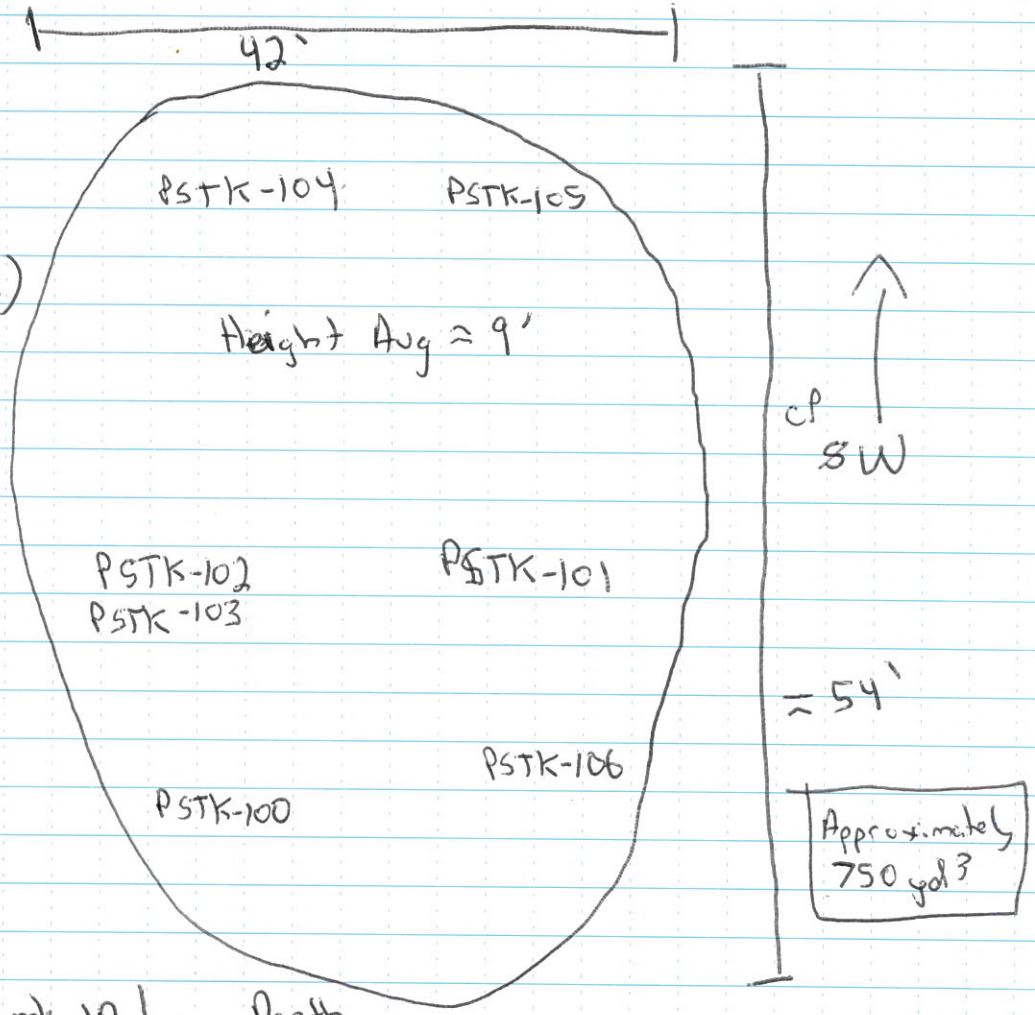 42'
PSTK-104 PSTK-105
)
Height Avg ≈ 9'
SW
PSTK-102 PSTK-101
PSTK-103
≈ 54'
PSTK-106
PSTK-100
Approximately
750 yd³